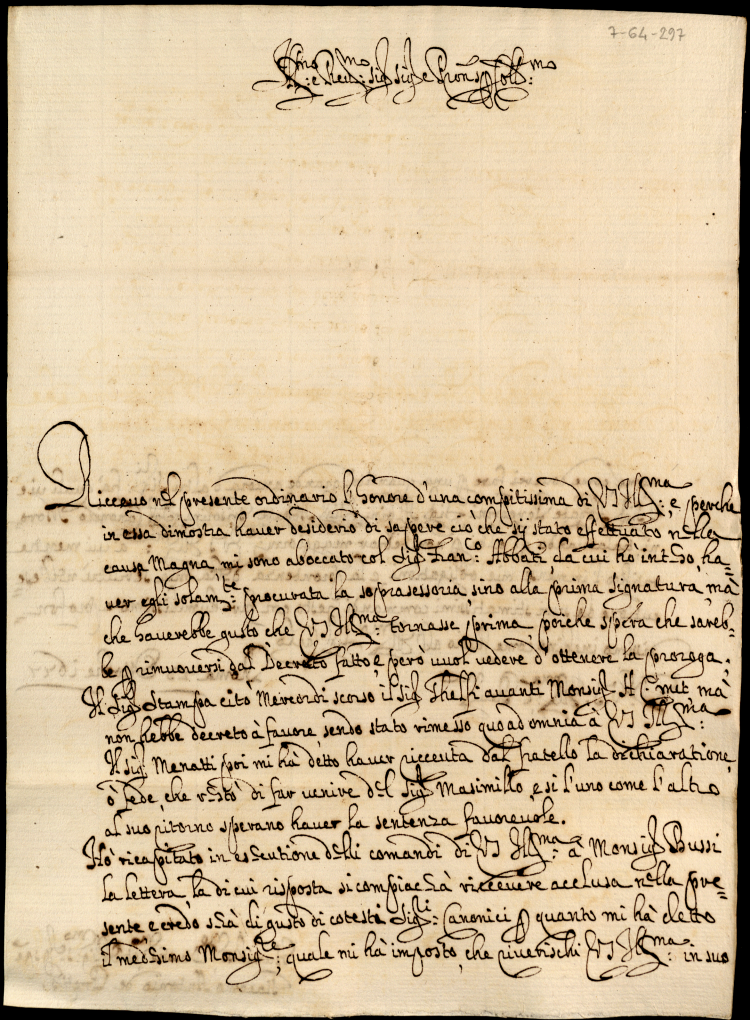 7-64-297
Ill.mo e Rev.mo Sig.r Sig.r e Pron Coll.mo
Riccevo nel presente ordinario l'honore d'una compitissima di VS Ill.ma: e perche
in essa dimostra haver desiderio di sapere ciò che sij stato effettuato nella
causa Magna, mi sono aboccato col Sig.r Fran.co: Abbati, da cui hà inteso, ha=
ver egli solam.te: procurata la soprasessoria sino alla prima signatura, mà
che haverebbe gusto che VS Ill.ma: tornasse prima, poiche spera che sareb=
be p rimuoversi dal Decreto fatto, e però vuol vedere d'ottenere la proroga.
Il Sig.r Stampa citò Mercordì scorso il Sig.r Thelfi avanti Monsig.r A. C. mut mà
non hebbe decreto à favore sendo stato rimesso quo ad omnia à VS Ill.ma:
Il sig.r Menatti poi mi hà detto haver riccevuta dal fratello la dichiaratione,
ò fede, che restò di far venire del Sig.r Masimillo, e si l'uno come l'altro
al suo ritorno sperano haver la sentenza favorevole.
Hò ricapitato in essecutione delli comandi di VS Ill.ma: à Monsig.r Bussi
la lettera, la di cui risposta si compiacerà riccevere acclusa nella pre=
sente e credo serà di gusto di cotesti Sig.ri: Canonici p quanto mi hà detto
il medesimo Monsig.re; quale mi hà imposto, che riverischi VS Ill.ma: in suo